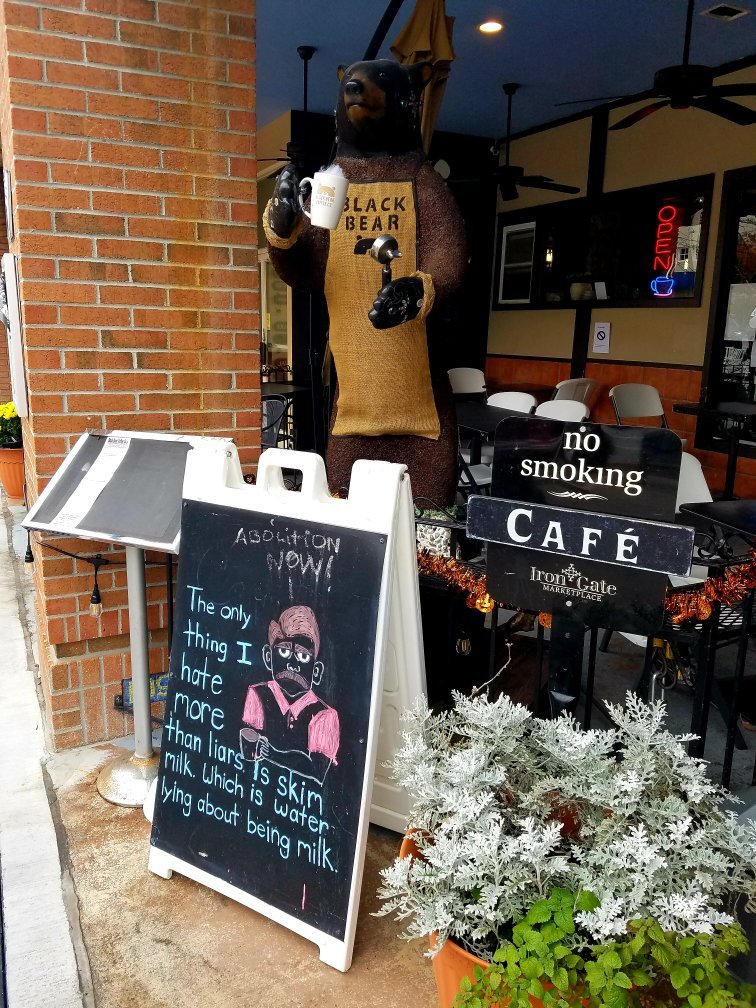 BLACK
BEAR
OPEN
no
smoking
CAFÉ
Iron Gate
MARKETPLACE
ABOLITION
NOW!
The only
thing I
hate
more
than liars, is skim
milk. Which is water
lying about being milk.